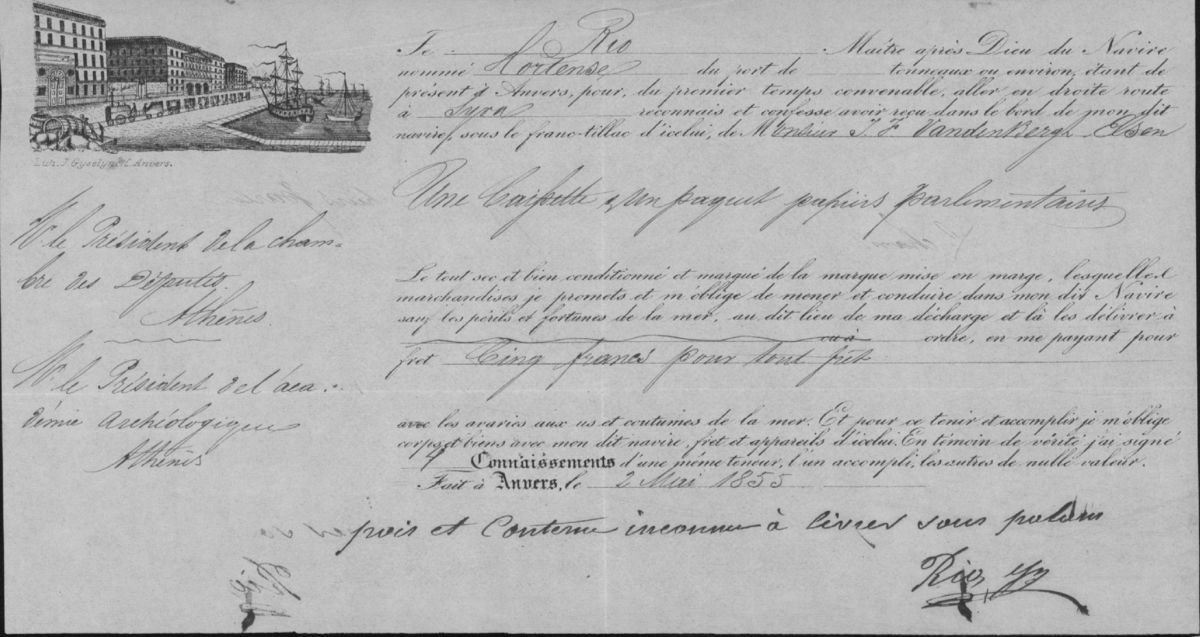 Lith. J. Gyselynck Anvers.
Je Rio Maître après Dieu du Navire
nommé Hortense du port de tonneaux ou environ, étant de
présent à Anvers, pour, du premier temps convenable, aller en droite route
à Syra reconnais et confesse avoir reçu dans le bord de mon dit
navire, sous le franc-tillac d'icelui, de Monsieur J. F. Vandenbergh
Une Caissette & Un paquet papiers parlementaires
Mr le Président de la cham-
bre des Députés.
Athènes.
Mr le Président de l'aca-
démie Archéologique
Athènes
Le tout sec et bien conditionné et marqué de la marque mise en marge, lesquelles
marchandises je promets et m'oblige de mener et conduire dans mon dit Navire
sauf les périls et fortunes de la mer, au dit lieu de ma décharge et là les délivrer à
ou à ordre, en me payant pour
fret Cinq francs pour tout fret
avec les avaries aux us et coutumes de la mer. Et pour ce tenir et accomplir je m'oblige
corps et biens avec mon dit navire, fret et appareils d'icelui. En témoin de vérité j'ai signé
4 Connaissements d'une même teneur, l'un accompli, les autres de nulle valeur.
Fait à Anvers, le 2 Mai 1855
pois et Contenu inconnu à livrer sous palan
Rio